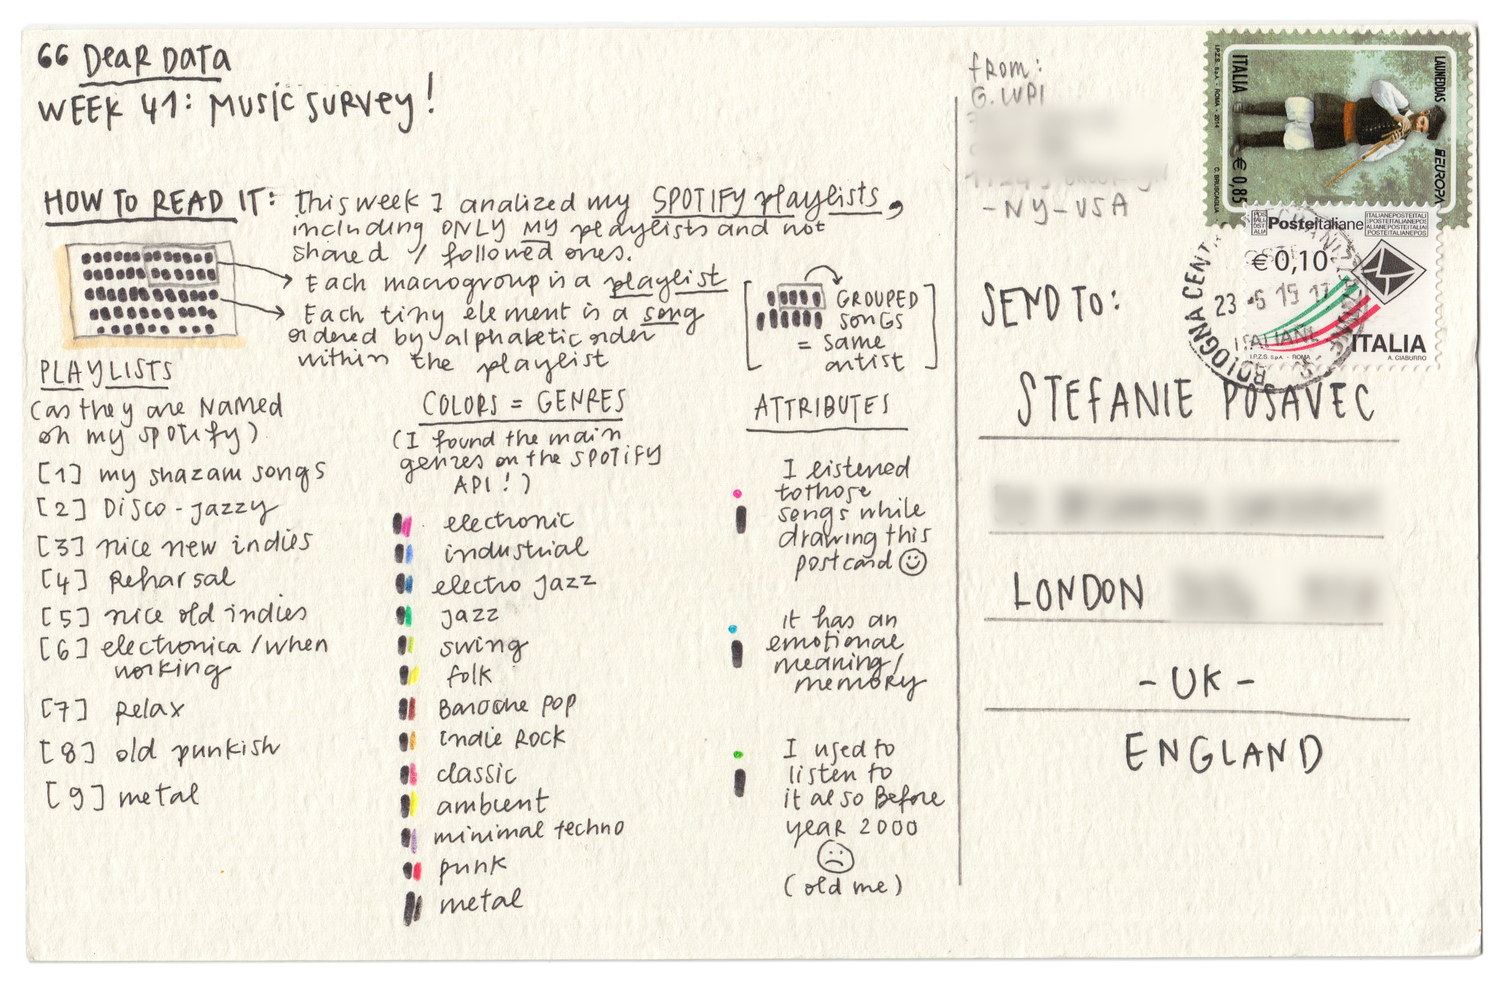 66 Dear DATA
WEEK 41: MUSIC SURVEY!
HOW TO READ IT: this week I analized my SPOTIFY playlists,
including ONLY MY playlists and not
shared / followed ones.
Each macrogroup is a playlist
Each tiny element is a song
ordered by alphabetic order
within the playlist
[ GROUPED
SONGS
= same
artist ]
PLAYLISTS
(as they are Named
on my spotify)
[1] my shazam songs
[2] Disco-jazzy
[3] nice new indies
[4] Reharsal
[5] nice old indies
[6] electronica / when
working
[7] Relax
[8] old punkish
[9] metal
COLORS = GENRES
(I found the main
genres on the SPOTIFY
API!)
electronic
industrial
electro jazz
jazz
swing
folk
Baroque pop
indie Rock
classic
ambient
minimal techno
punk
metal
ATTRIBUTES
I listened
to those
songs while
drawing this
postcard
it has an
emotional
meaning/
memory
I used to
listen to
it also Before
year 2000
(old me)
from:
G. LUPI
-NY-USA
SEND TO:
STEFANIE POSAVEC
LONDON
- UK -
ENGLAND
ITALIA € 0,85
I.P.Z.S. S.p.A. - ROMA - 2014
C. BRUSCAGLIA
LAUNEDDAS
EUROPA
Posteitaliane
€0,10
ITALIA
I.P.Z.S. S.p.A. - ROMA
A. CIABURRO
BOLOGNA CENT.
23 -6 15 17